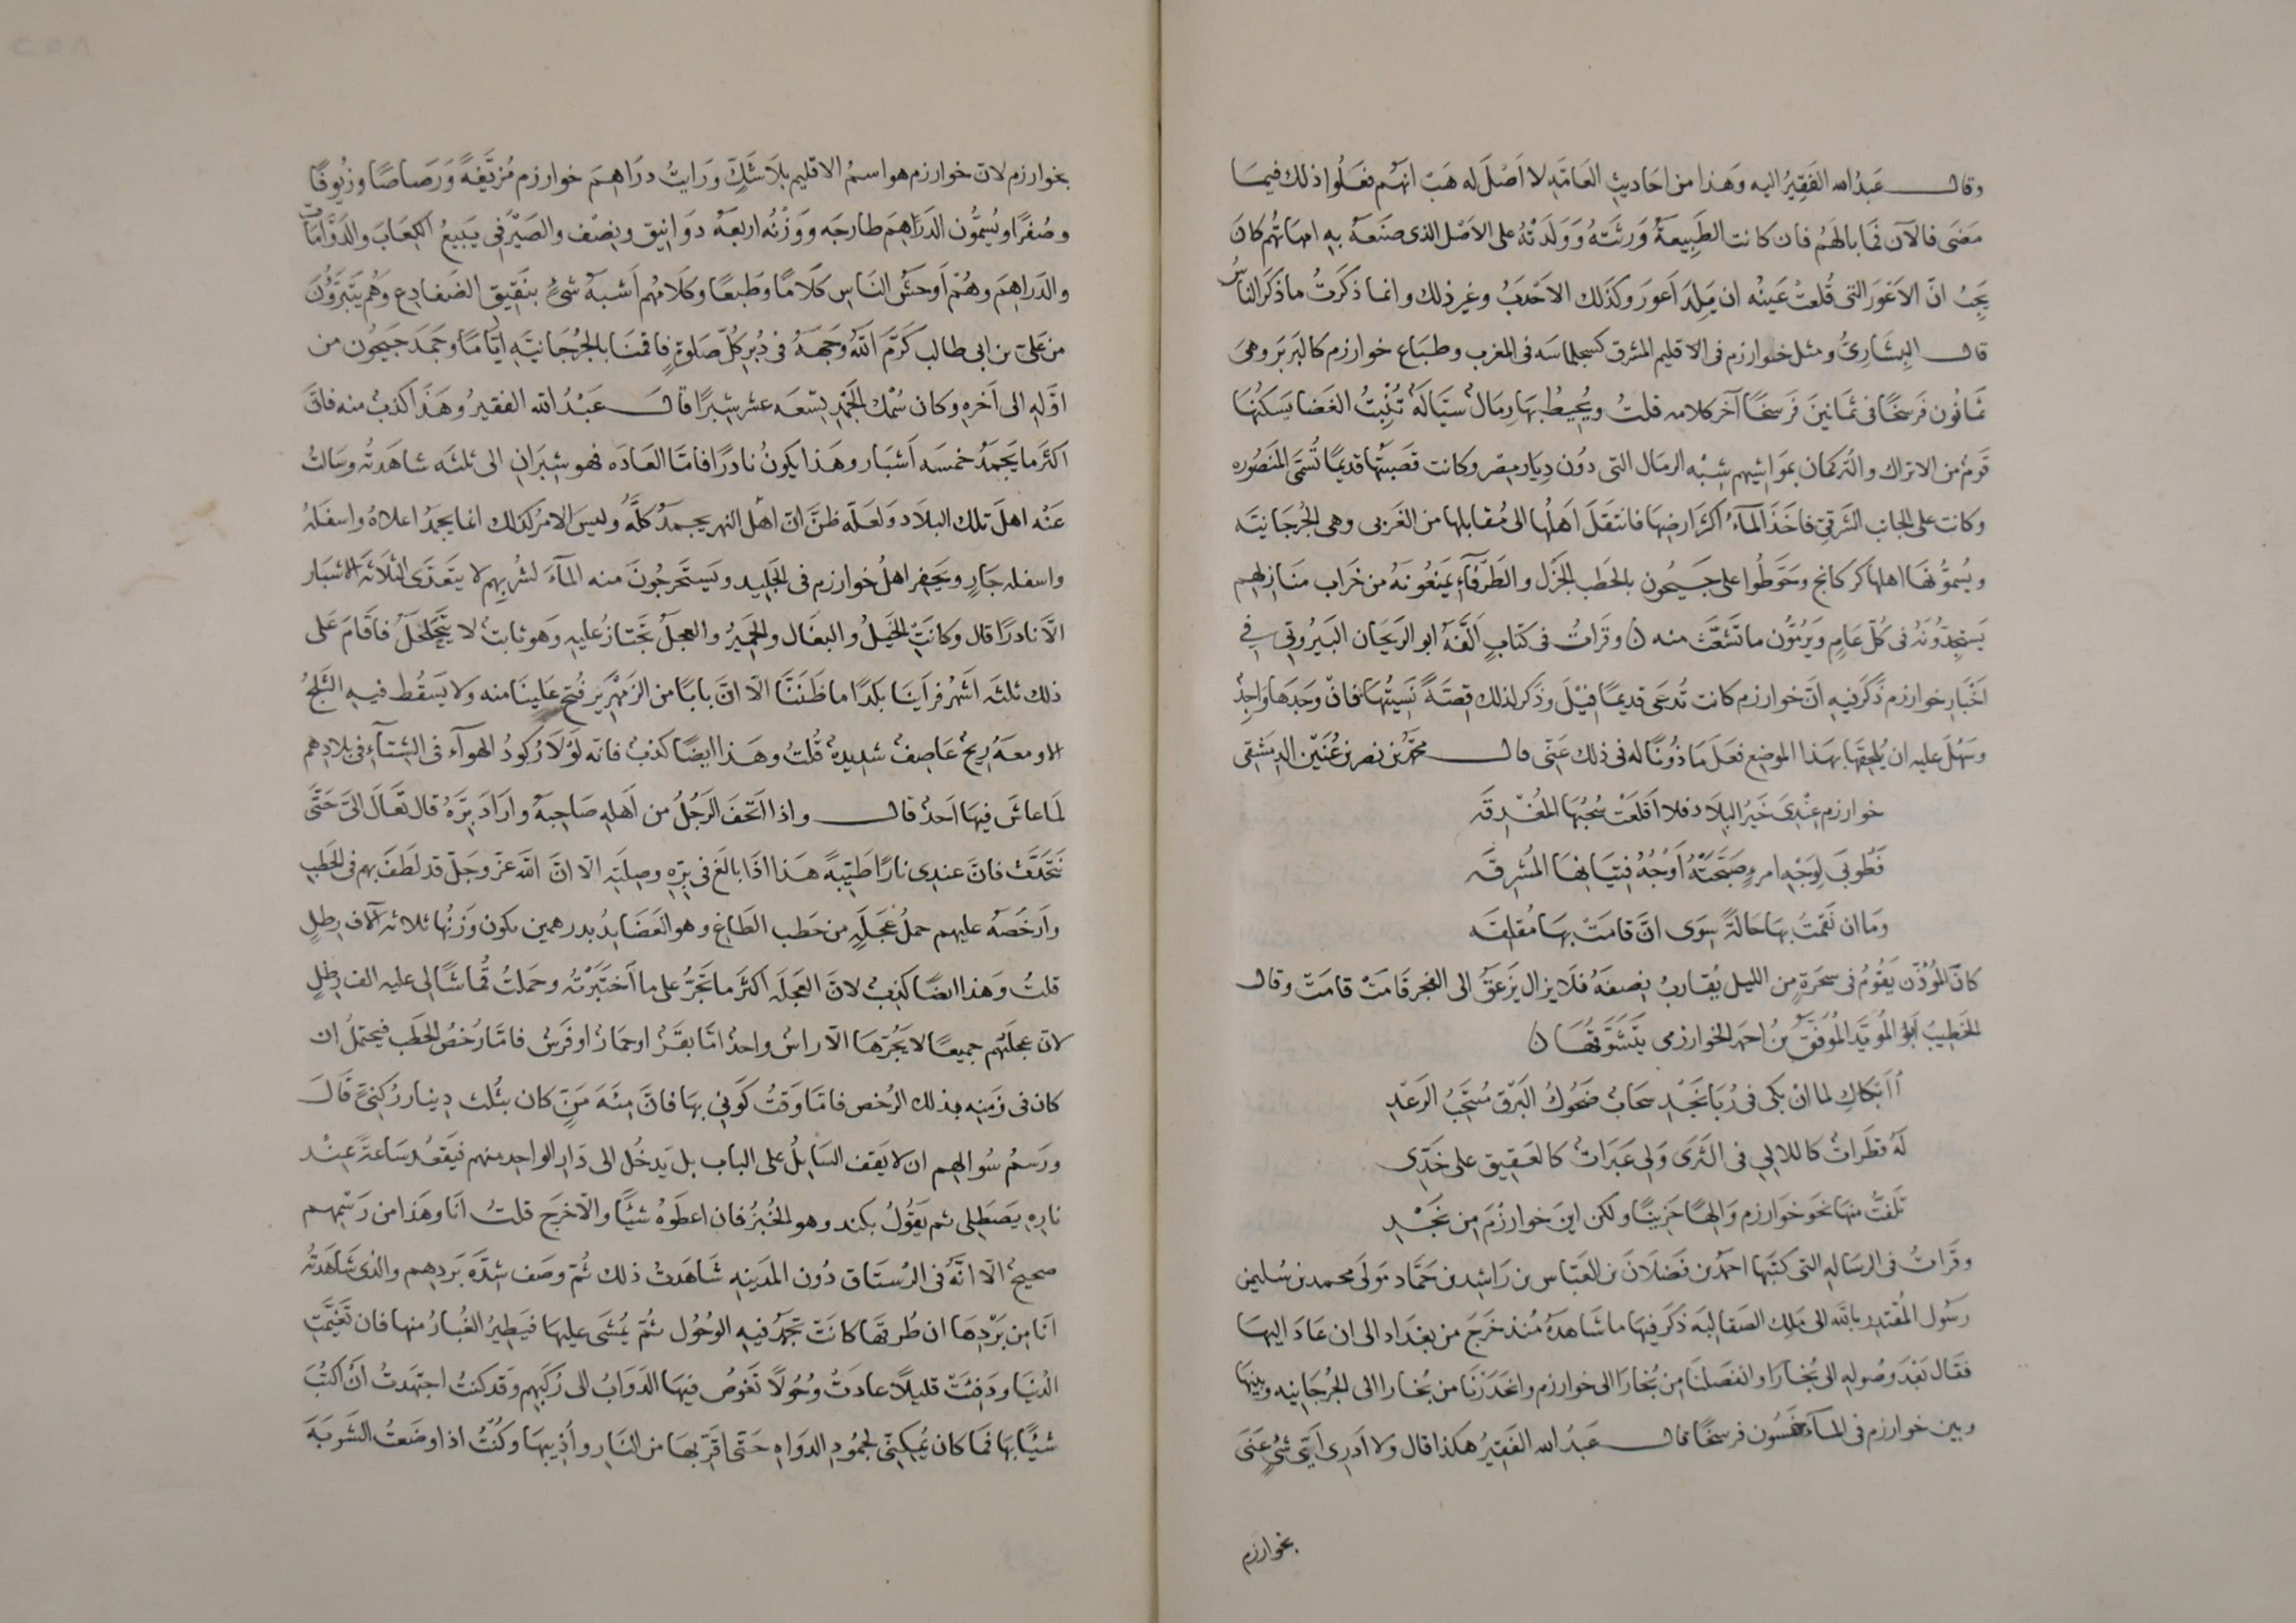 وقال عبدُ الله الفَقِيرُ اليه وَهَذا من احَاديثِ العَامَّهِ لا اَصْلَ له هَبْ انهُم فعَلُوا ذلك فيمَا
مَضَى فالآنَ فمَا بالهُمُ فان كانت الطَبِيعةُ وَرِثَتهُ وَوَلدَتهُ على الاَصْل الذى صنَعهُ بهِ امهَاتهُم كانَ
يَجِبُ انّ الاَعْوَرَ التى قُلعتْ عَينُه ان يَلِدَ اَعورَ وكذَلك الاحْدَبُ وغير ذلك وانما ذكَرتُ ما ذكَر الناسُ
قال البِشَارىُّ ومثل خوارزم فى الاقليم المشرق كسجلماسَه فى المغرب وطبَاع خوارزم كالبَربَر وهىَ
ثمَانُون فَرسَخًا فى ثمَانينَ فَرسخًا آخر كلامه قلتُ ويُحِيطُ بهَا رِمَالٌ سيّالَهٌ تُنبِتُ الغَضا يَسكنُها
قَومٌ من الاتراك والتركمان بموَاشيهم شِبْه الرمَال التى دُون دِيَار مِصْر وكانت قَصَبتُها قديمًا تُسَمى المنَصُوره
وكانت على الجانب الشَرقىِّ فاخَذَ المآءُ اكثَر ارضِهَا فانتقَلَ اَهلُها الى مُقابلها من الغَربى وهى الجُرجَانيَّه
ويُسمُّونهَا اهلها كركانج وحَوَّطُوا على جَيحُون بالحَطب الجَزْل والطَرفآءِ يَمنعُونَهُ من خَراب منَازلهِم
يَستجِدُّونَهُ فى كلّ عَامٍ وَيَرُمُّون ما تَشَعَّثَ منه ن وقرَاتُ فى كتابٍ الَّفهُ ابو الريَحان البَيرُونى فى
اخْبَارِ خوارزم ذكَر فيهِ انّ خوارزم كانت تُدعَى قديمًا فيْلَ وذكر لذلك قِصَّهً نَسِيتُهَا فان وجَدَها وَاجِدٌ
وسَهُلَ عليه ان يُلحِقَها بهَذا الموضِع فعَلَ مَاذُونًا له فى ذلك عَنّى قال محمّد بن نصر بن عُنَين الدِمَشْقى
خوارزم عِنْدِى خَيرُ البِلاَد فلا اَقلَعَتْ سُحْبُهَا المُغْدِقَه
فَطُوبَى لِوَجْهِ امرءٍ صَبَّحَتْهُ اَوْجُهُ فِتيَانهَا المُشرِقَه
وَمَا ان نَقَمتُ بهَا حَالَةً سِوَى انّ قامَتْ بهَا مُقلِقَه
كانَ المُؤذّن يَقُومُ فى سحَرةٍ من الليل يُقاربُ نِصفَهُ فلا يزال يَزعَقُ الى الفجر قامَتْ قامَتْ وقال
الخَطِيبُ اَبُو المُويَّد المُوَفَّقُ بنُ احمد الخوارزمى يتَشَوقهَا ن
أاَبكاكِ لما انْ بكى فى رُبَا نَجْدٍ سحَابٌ ضَحُوكُ البَرق مُنتَحِبُ الرَعْدِ
لَهُ قطَراتٌ كاللالِى فى الثَرَى وَلى عَبَرَاتٌ كالعَقِيق على خَدّى
تَلَفتُّ منهَا نَحوَ خوَارزم وَالِهًا حَزِينًا ولكن اينَ خوارزْمَ مِن نَجْدِ
وقَراتُ فى الرسَاله التى كتبَهَا احمَد بن فَضْلاَنَ بن العبَّاس بن رَاشِد بن حَمَّاد مَولَى محمد بن سُليمن
رسَول المُقْتَدِر بالله الى مَلِك الصَقالِبه ذكَر فيهَا ما شَاهدَهُ مُنذ خَرجَ من بغدَاد الى ان عَادَ اليهَا
فقَال بَعْدَ وصُولِهِ الى بُخَارَا وانفَصَلنَا مِن بُخَارَا الى خوارزم وانحَدَرنَا من بُخَارا الى الجُرجَانيه وبينهَا
وبين خوارزم فى المآءِ خمسُون فرسخًا قال عَبدُ الله الفَقِيرُ هكذا قال ولا اَدرِى اَىّ شئٍ عَنَى
بخوارزم
بخوارزم لانّ خوارزم هو اسمُ الاقليم بلاَ شَكّ وَرَايتُ درَاهِمَ خوارزم مُزَيَّفةً وَرَصاصًا وزُيوفًا
وصُفرًا ويُسمُّون الدَرَاهِمَ طازجَه ووَزْنُه اربعهُ دوَانيق ونِصْف والصَيْرَفى يَبيعُ الكِعَابَ والدَوَّامَات
والدَراهِمَ وهُمْ اَوحَشُ النَاسِ كلَامًا وَطَبعًا وكلَامُهم اَشبَهُ شئٍ بنَقيق الضَفادِع وهُم يَتَبَرَّؤُنَ
من عَلى بن ابى طالب كَرَّمَ اللّٰهُ وَجهَهُ فى دُبُرِ كلّ صَلوةٍ فاقمنَا بالجُرْجَانيَّهِ ايّامًا وجَمَدَ جَيحُون من
اوّلهِ الى آخرهِ وكان سُمْك الجَمْدِ تِسْعَه عشر شِبرًا قال عَبْدُ الله الفقيرُ وهَذَا كَذبٌ منه فانّ
اكثَر ما يَجمَدُ خمسَه اَشبَار وهَذا يكونُ نادرًا فامّا العَادَه فهو شِبرَانِ الى ثلثَه شاهَدتُه وسَالتُ
عَنْه اهلَ تلك البلاَد ولَعَلّه ظَنَّ انّ اهل النهر يجمدُ كلُّه وليسَ الامْرُ كذلك انما يجمدُ اعلاهُ واسفلهُ
واسفله جَارٍ ويَحفِر اهلُ خوارزم فى الجَليد ويَستَخرجُونَ منه المآءَ لشُربِهم لا يتعَدَّى الثلاثَه الاشبَار
الّا نادرًا قال وكانَتِ الخَيلُ والبغَال والحَميرُ والعجلُ تَجتازُ عليهِ وَهو ثابتٌ لا يتَحَلحَلُ فاقَامَ عَلى
ذلك ثلثَه اَشهُر فرَاَينَا بلَدًا ما ظَنَنَّا الّا انّ بابًا من الزَمْهَرير فُتحَ علَينَا منه ولا يَسقُط فيهِ الثَلجُ
الا ومعَهُ رِيحٌ عَاصِفٌ شديدهٌ قُلتُ وهَذا ايضًا كذبٌ فانّه لَوْلاَ رُكودُ الهوآءِ فى الشِتآءِ فى بلادِهم
لَمَا عاشَ فيهَا اَحدٌ قال واذا اتحَفَ الرَجُلُ من اَهلهِ صَاحِبهُ وارَادَ بِرَّهُ قال تعَالَ اِلىَّ حَتَّى
نتَحَدَّثَ فانّ عندِى نارًا طَيّبةً هَذا اذَا بالَغ فى بِرّهِ وصِلَتِهِ الّا انّ اللّٰهَ عزّ وجَلّ قد لَطَفَ بهم فى الحَطبِ
واَرخَصَهُ عليهم حملُ عَجَلَهٍ من حَطب الطَاغ وهو الغَضَا بدرهمين يكون وَزنُها ثلاثه آلآف رِطلٍ
قلتُ وَهذا ايضًا كَذِبٌ لانّ العَجَلَه اكثَر ما تَجرُّ على ما اَختَبَرْتُه وحمَلتُ قُماشًا لى عليه الف رِطلٍ
لانّ عجلَتَهم جميعًا لا يَجُرّهَا الّا رَاسٌ واحدٌ امّا بقَرٌ او حمَارٌ او فَرَسٌ فامّا رُخصُ الحَطَب فيحتملُ ان
كان فى زَمنِهِ بذلك الرُخص فامّا وَقتُ كَونى بهَا فانّ مِئَهَ مَنٍّ كان بثُلث دِينار رُكنىٍّ قَالَ
ورَسمُ سُوالهِم ان لا يَقف السَايلُ على الباب بل يَدخُل الى دَارِ الواحِد منهم فيَقعُد سَاعةً عِنْد
نارِه يَصطَلِى ثم يَقُولُ بكند وهو الخُبزُ فان اعطَوهُ شيًّا والّا خرجَ قلتُ انَا وهَذا من رَسْمِهم
صحيحٌ الّا انّهُ فى الرُسْتَاق دُون المدَينهِ شَاهَدتُ ذلك ثُمّ وصَف شِدَّه بَردِهم والذى شَاهَدتُه
انا مِن بَرْدِهَا ان طُرقَهَا كانَت تجمُد فيهِ الوحُول ثُمّ يُمشى عليهَا فيَطِيرُ الغُبَارُ منها فان تَغيَّمَتِ
الدُنيَا ودَفِئتْ قليلًا عادَتْ وُحُولًا تَغوصُ فيهَا الدَوَابُ الى رُكَبِهم وقَد كنتُ اجتهَدتُ اَنْ اكتُبَ
شيًّا بهَا فمَا كان يُمكِننى لجمُودِ الدوَاهِ حَتّى اقَرّبهَا من النَارِ واُذيبهَا وكنتُ اذا وضَعتُ الشَربَهَ